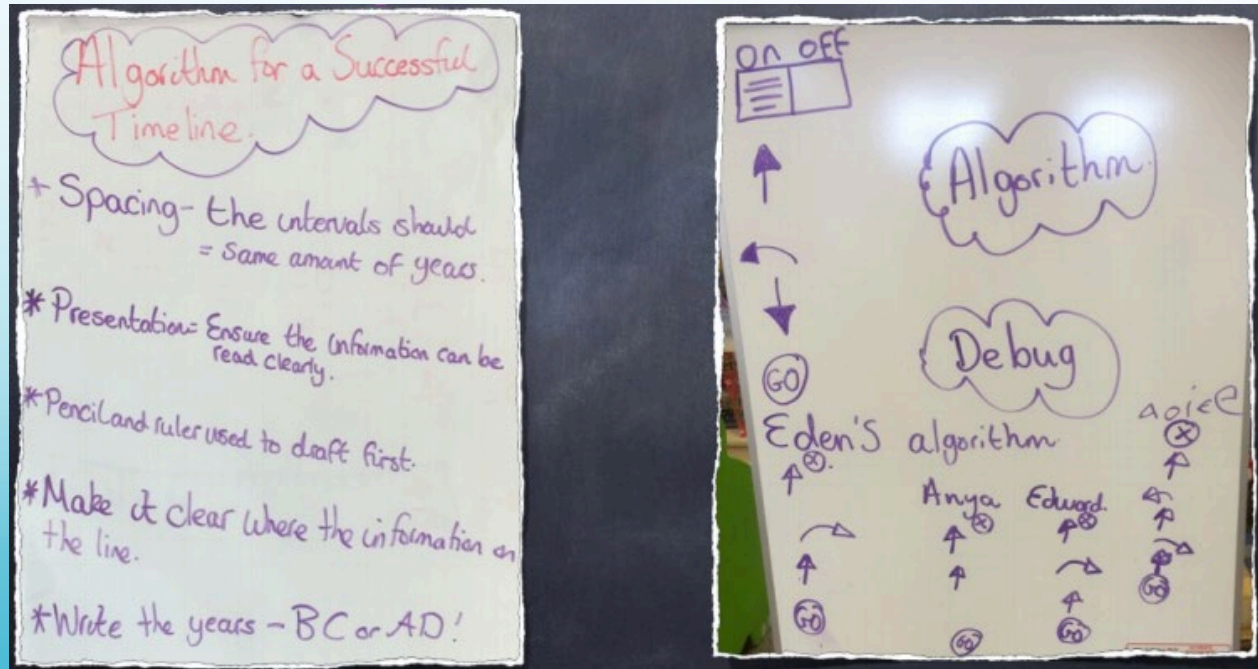 Algorithm for a Successful
Timeline.
* Spacing - the intervals should
= Same amount of years.
* Presentation = Ensure the information can be
read clearly.
* Pencil and ruler used to draft first.
* Make it clear where the information on
the line.
* Write the years - BC or AD!
on OFF
Algorithm.
Debug
GO
Eden's algorithm
Anya
Edward.
GO
GO
GO
GO